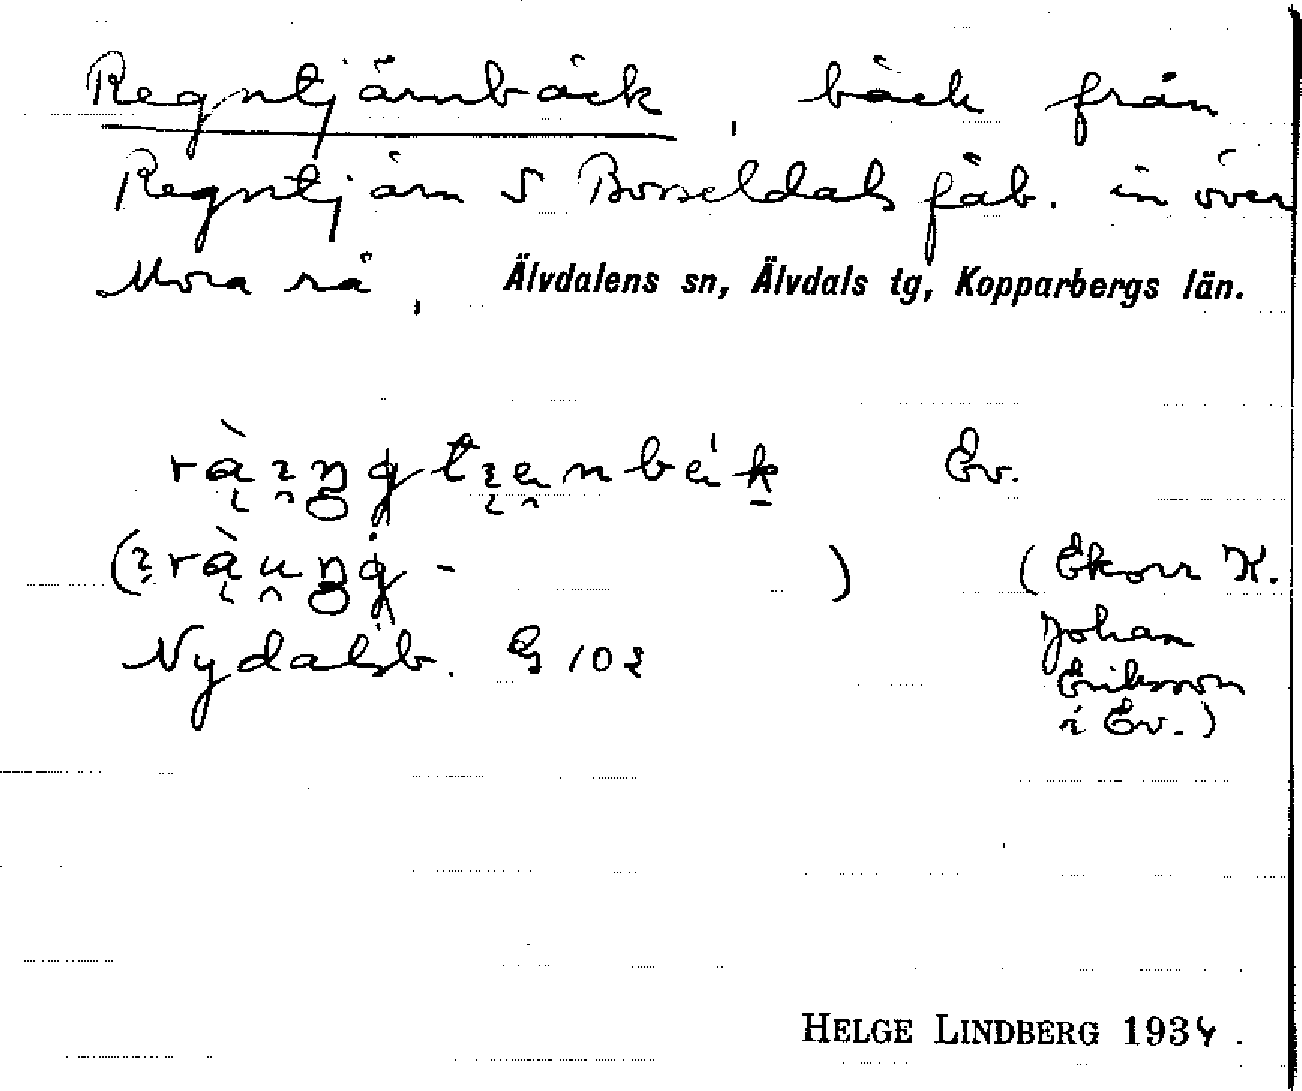 Regntjärnbäck, bäck från
Regntjärn S Bosseldals fäb. in över
Mora rå, Älvdalens sn, Älvdals tg, Kopparbergs län.
Ev.
( Ekorr K.
Johan
Nydalsb. G 102
Eriksson
i Ev.)
HELGE LINDBERG 1934.